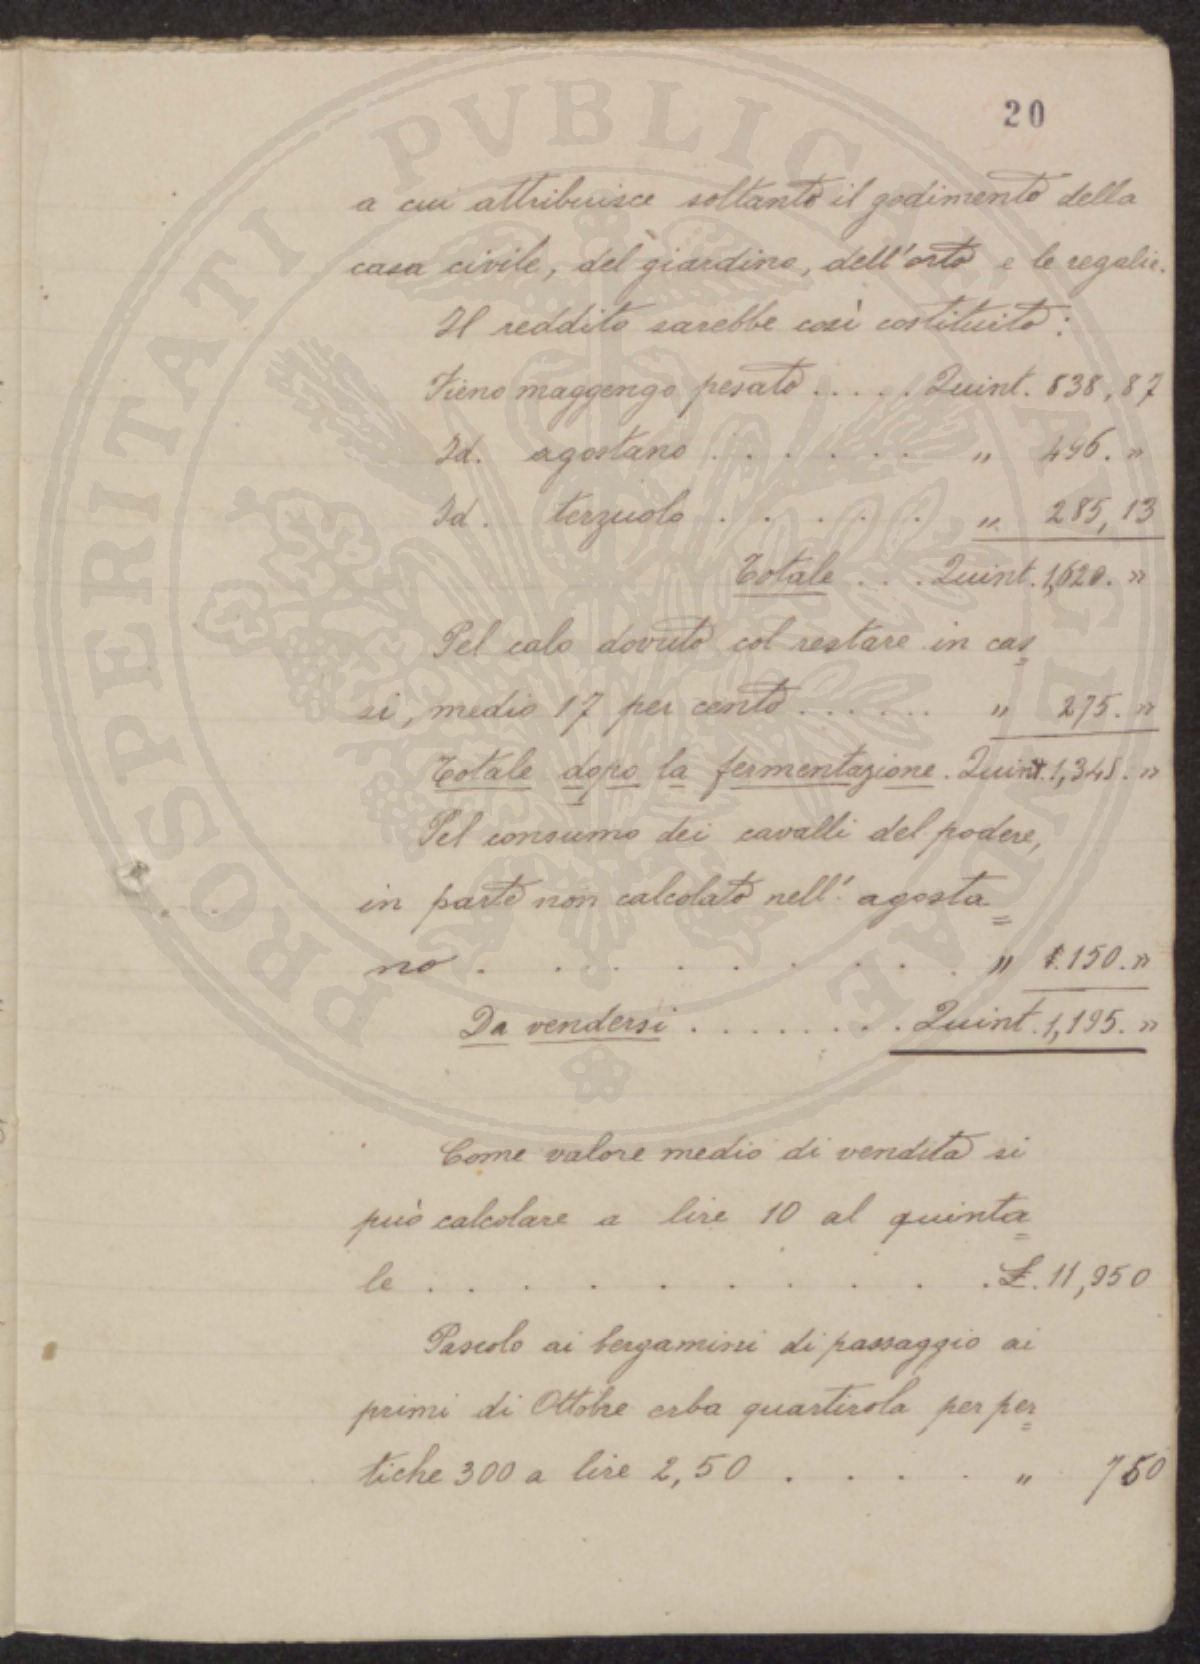 20
a cui attribuisce soltanto il godimento della
casa civile, del giardino, dell'orto e le regalie.
Il reddito sarebbe così costituito:
Fieno maggengo pesato . . . . . Quint. 838,87
Id. agostano . . . . . . „ 496. »
Id. terzuolo . . . . . . „ 285,13
Totale . . . Quint. 1,620. »
Pel calo dovuto col restare in cas
si, medio 17 per cento . . . . . . „ 275. »
Totale dopo la fermentazione. Quint. 1,345. »
Pel consumo dei cavalli del podere,
in parte non calcolato nell'agosta=
no . . . . . . . . . „ 150. »
Da vendersi . . . . . . . . Quint. 1,195. »
Come valore medio di vendita si
può calcolare a lire 10 al quinta=
le . . . . . . . . . . . £. 11,950
Pascolo ai bergamini di passaggio ai
primi di Ottobre erba quartirola per per=
tiche 300 a lire 2,50 . . . . „ 750
PROSPERITATI PVBLICAE AVGENDAE